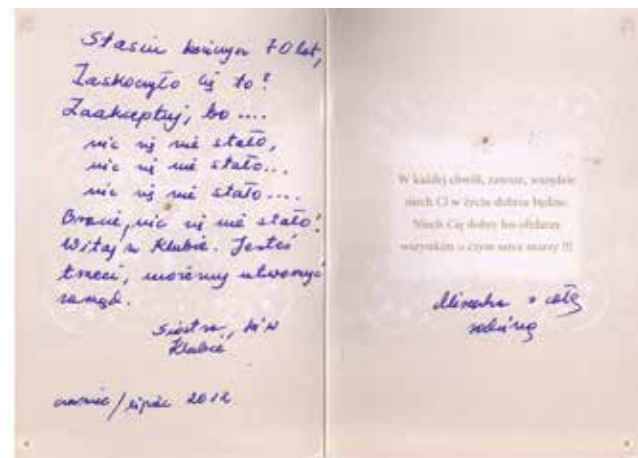 Stasiu kończysz 70 lat,
Zaskoczyło Cię to?
Zaakceptuj, bo ....
nic się nie stało,
nic się nie stało...
nic się nie stało....
Bracie, nic się nie stało!
Witaj w Klubie. Jesteś
trzeci, możemy utworzyć
zarząd.
Siostra,
Klubie
czerwiec/lipiec 2012
W każdej chwili, zawsze, wszędzie
niech Ci w życiu dobrze będzie.
Niech Cię dobry los obdarza
wszystkim o czym serce marzy !!!
z całą
rodziną